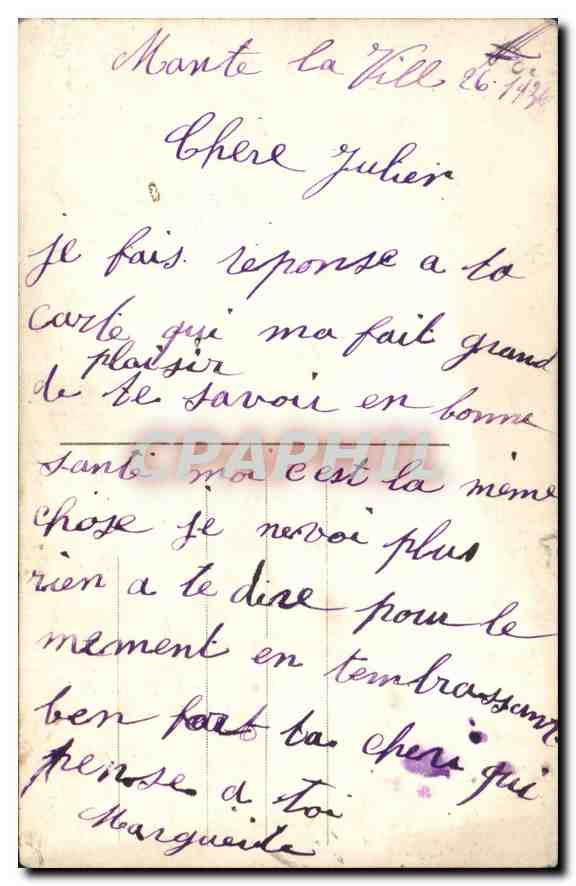 Mante la Ville 26.
Chere Julien
je fais reponse a ta
carte qui ma fait grand
plaisir
de te savoir en bonne
santé moi c'est la même
chose je ne voi plus
rien a te dire pour le
mement en tembrassant
ben fort ta cheri qui
pense a toi
Marguerite
CPAPHIL.COM